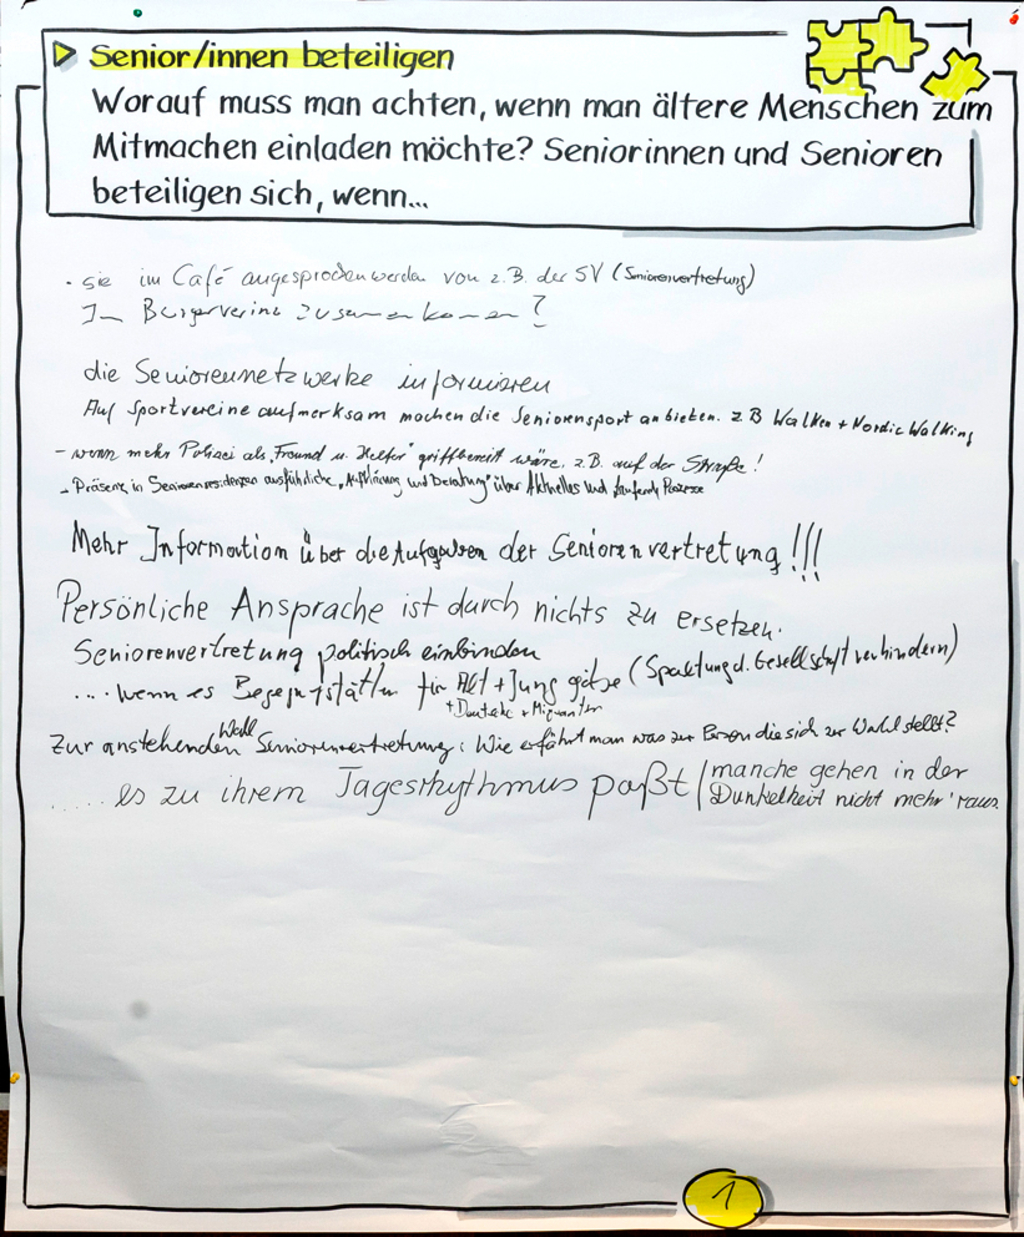 Senior/innen beteiligen
Worauf muss man achten, wenn man ältere Menschen zum
Mitmachen einladen möchte? Seniorinnen und Senioren
beteiligen sich, wenn...
• sie im Café angesprochen werden von z.B. der SV (Seniorenvertretung)
Im Bürgervereine zusammenkommen?
die Seniorennetzwerke informieren
Auf Sportvereine aufmerksam machen die Seniorensport anbieten. z B Walken + Nordic Walking
- wenn mehr Polizei als „Freund u. Helfer" griffbereit wäre, z.B. auf der Straße!
- Präsenz in Seniorenresidenzen ausführliche „Aufklärung und Beratung" über Aktuelles und laufende Prozesse
Mehr Information über die Aufgaben der Seniorenvertretung!!!
Persönliche Ansprache ist durch nichts zu ersetzen.
Seniorenvertretung politisch einbinden
.... wenn es Begegnungsstätten für Alt + Jung gäbe (Spaltung d. Gesellschaft verhindern)
+ Deutsche + Migranten
Zur anstehenden Wahl Seniorenvertretung: Wie erfährt man was zur Person die sich zur Wahl stellt?
...... es zu ihrem Tagesrhythmus paßt / manche gehen in der
Dunkelheit nicht mehr 'raus
1